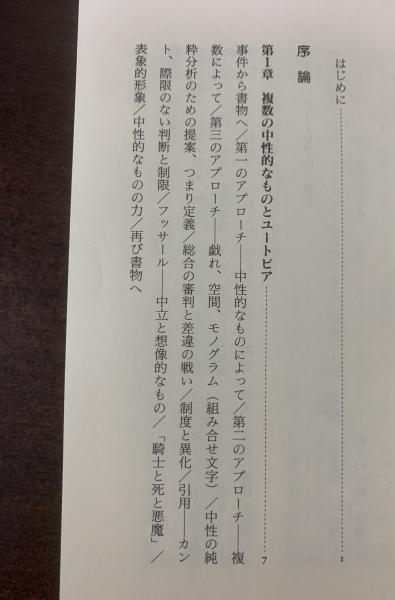 はじめに……………………………………1
序論
第1章 複数の中性的なものとユートピア……………………7
事件から書物へ／第一のアプローチ――中性的なものによって／第二のアプローチ――複
数によって／第三のアプローチ――戯れ、空間、モノグラム（組み合せ文字）／中性の純
粋分析のための提案、つまり定義／総合の審判と差違の戦い／制度と異化／引用――カン
ト、際限のない判断と制限／フッサール――中立と想像的なもの／「騎士と死と悪魔」／
表象的形象／中性的なものの力／再び書物へ